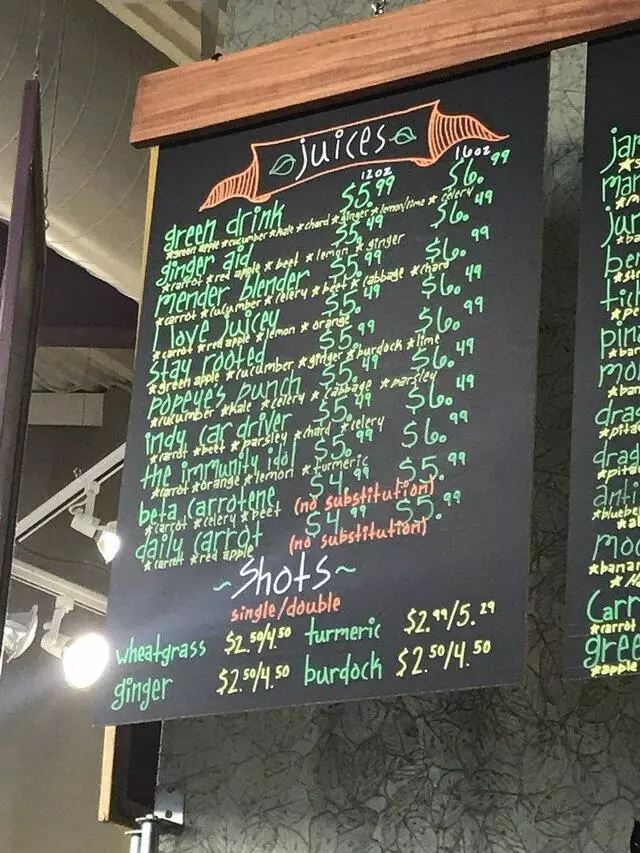 juices
12oz 16oz
green drink $5.99 $6.99
*green apple *cucumber *kale *chard *ginger *lemon/lime *celery
ginger aid $5.49 $6.49
*carrot *red apple *beet *lemon *ginger
mender blender $5.99 $6.99
*carrot *cucumber *celery *beet *cabbage *chard
I love Juicey $5.49 $6.49
*carrot *red apple *lemon *orange
Stay rooted $5.99 $6.99
*green apple *cucumber *ginger *burdock *lime
popeyes punch $5.49 $6.49
*cucumber *kale *celery *cabbage *parsley
indy car driver $5.49 $6.49
*carrot *beet *parsley *chard *celery
the immunity idol $5.99 $6.99
*carrot *orange *lemon *turmeric
beta carrotene $4.99 $5.99
*carrot *celery *beet (no substitution)
daily carrot $4.99 $5.99
*carrot *red apple (no substitution)
~Shots~
single/double
wheatgrass $2.50/4.50 turmeric $2.99/5.29
ginger $2.50/4.50 burdock $2.50/4.50